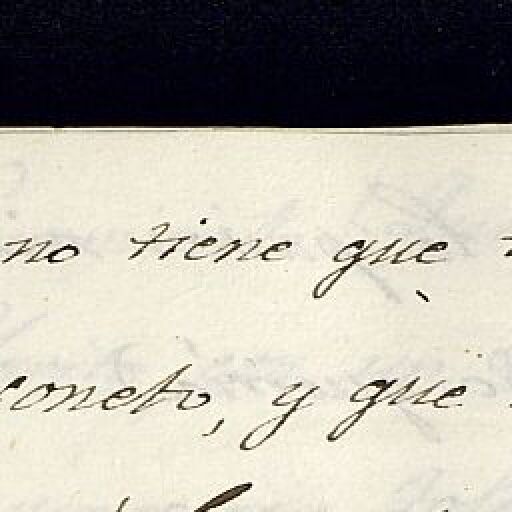 no tiene que
coneto, y que